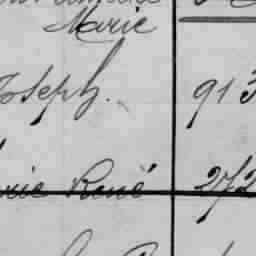 Marie
Joseph. 913
rie René 272